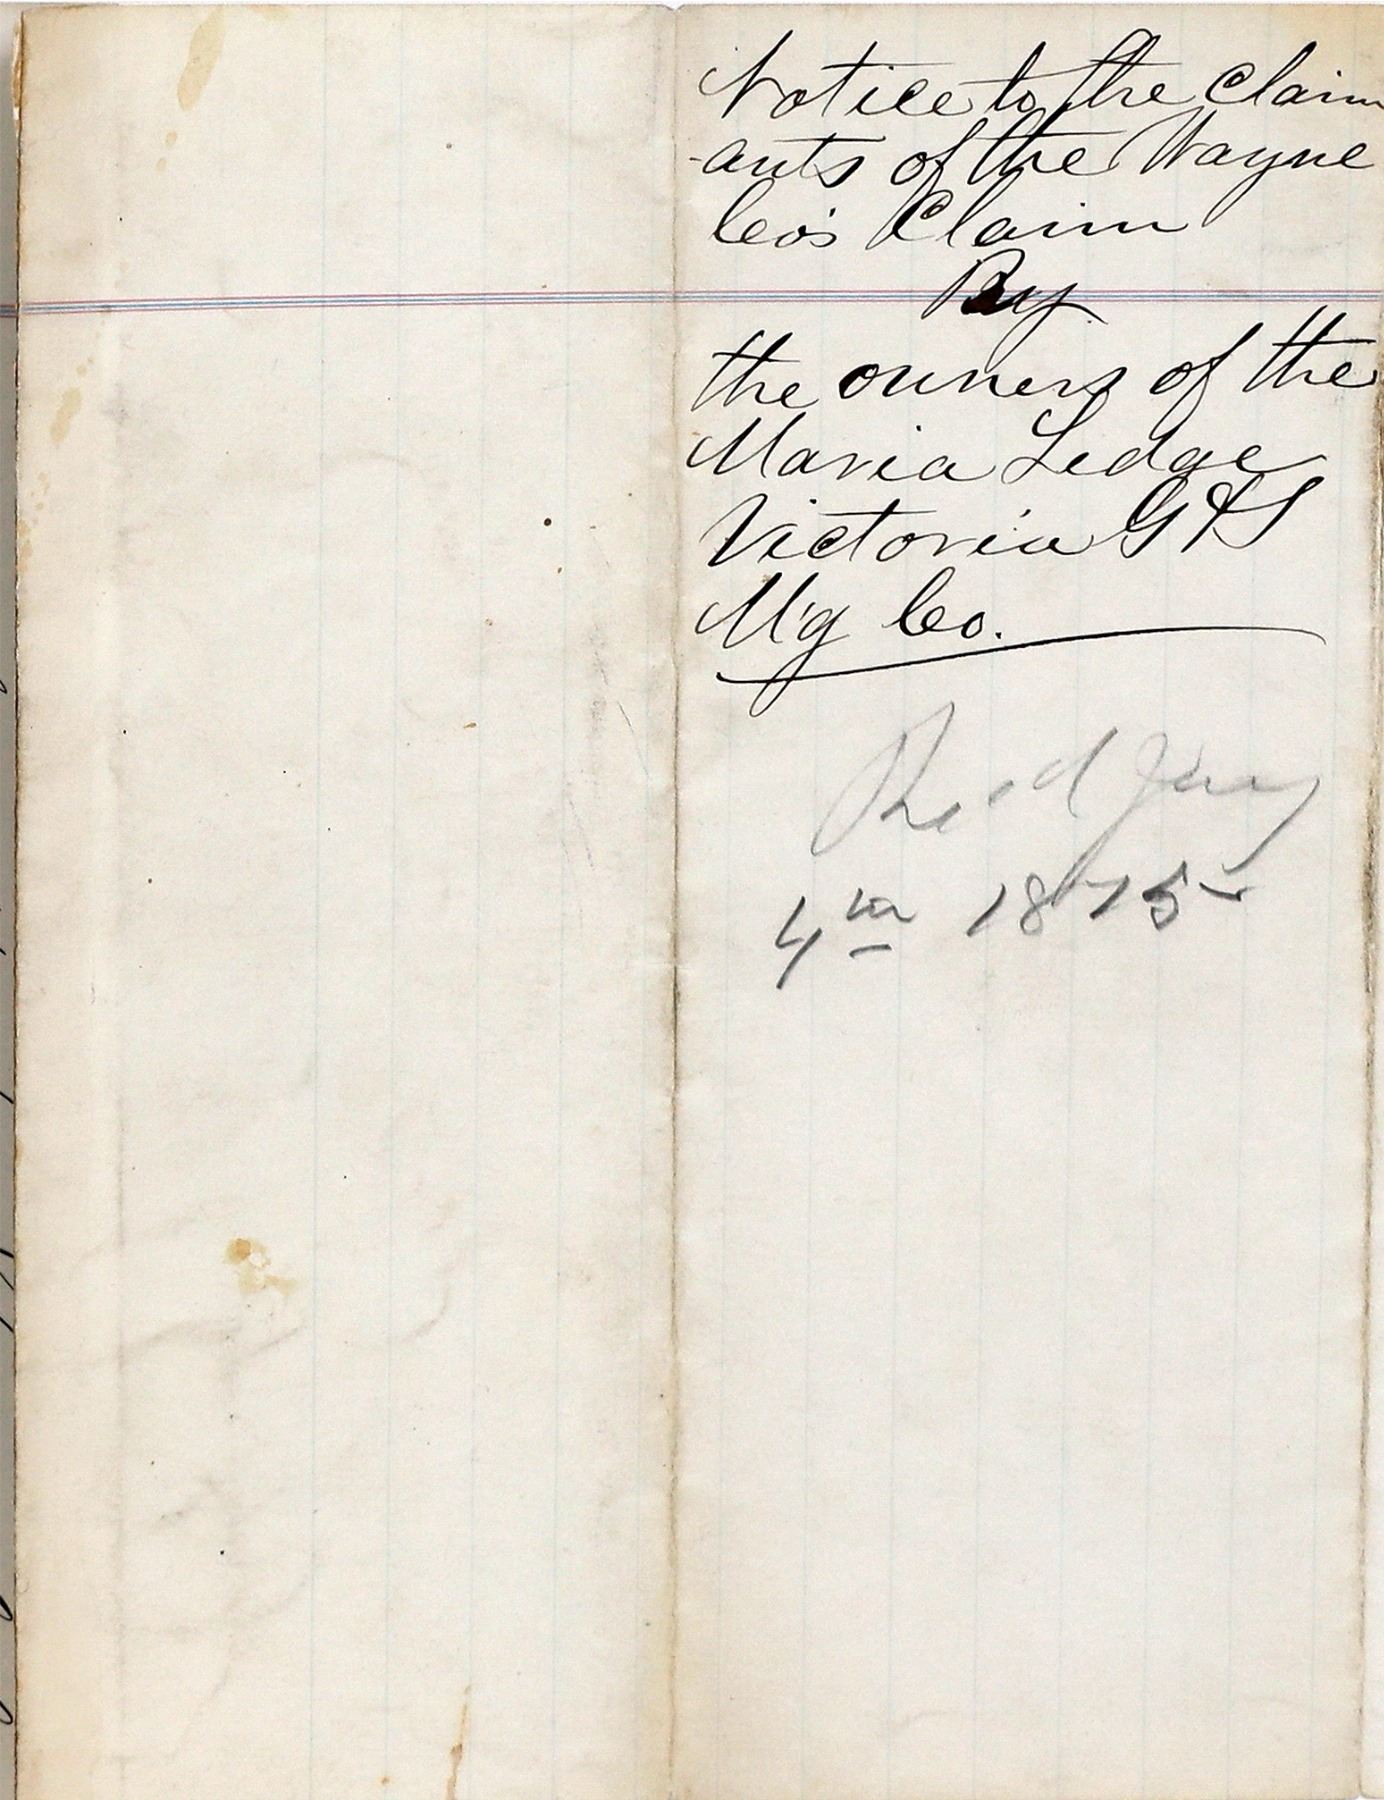 Notice to the Claim
-ants of the Wayne
Co's Claim
By
the owners of the
Maria Ledge
Victoria G & S
M'g Co.
Rec'd Jany
4th 1875